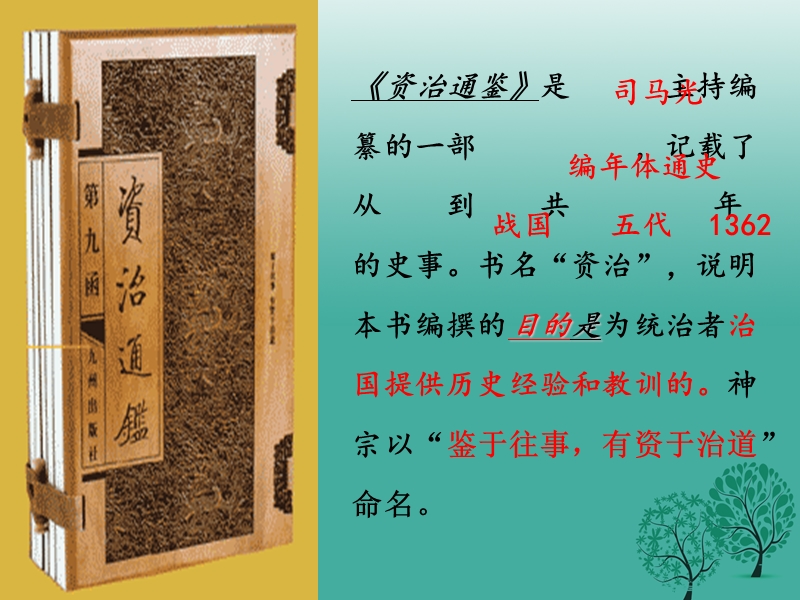 《资治通鉴》是 司马光 主持编
纂的一部 编年体通史 ，记载了
从 战国 到 五代 共 1362 年
的史事。书名“资治”，说明
本书编撰的目的是为统治者治
国提供历史经验和教训的。神
宗以“鉴于往事，有资于治道”
命名。
第九函
資治通鑑
九州出版社